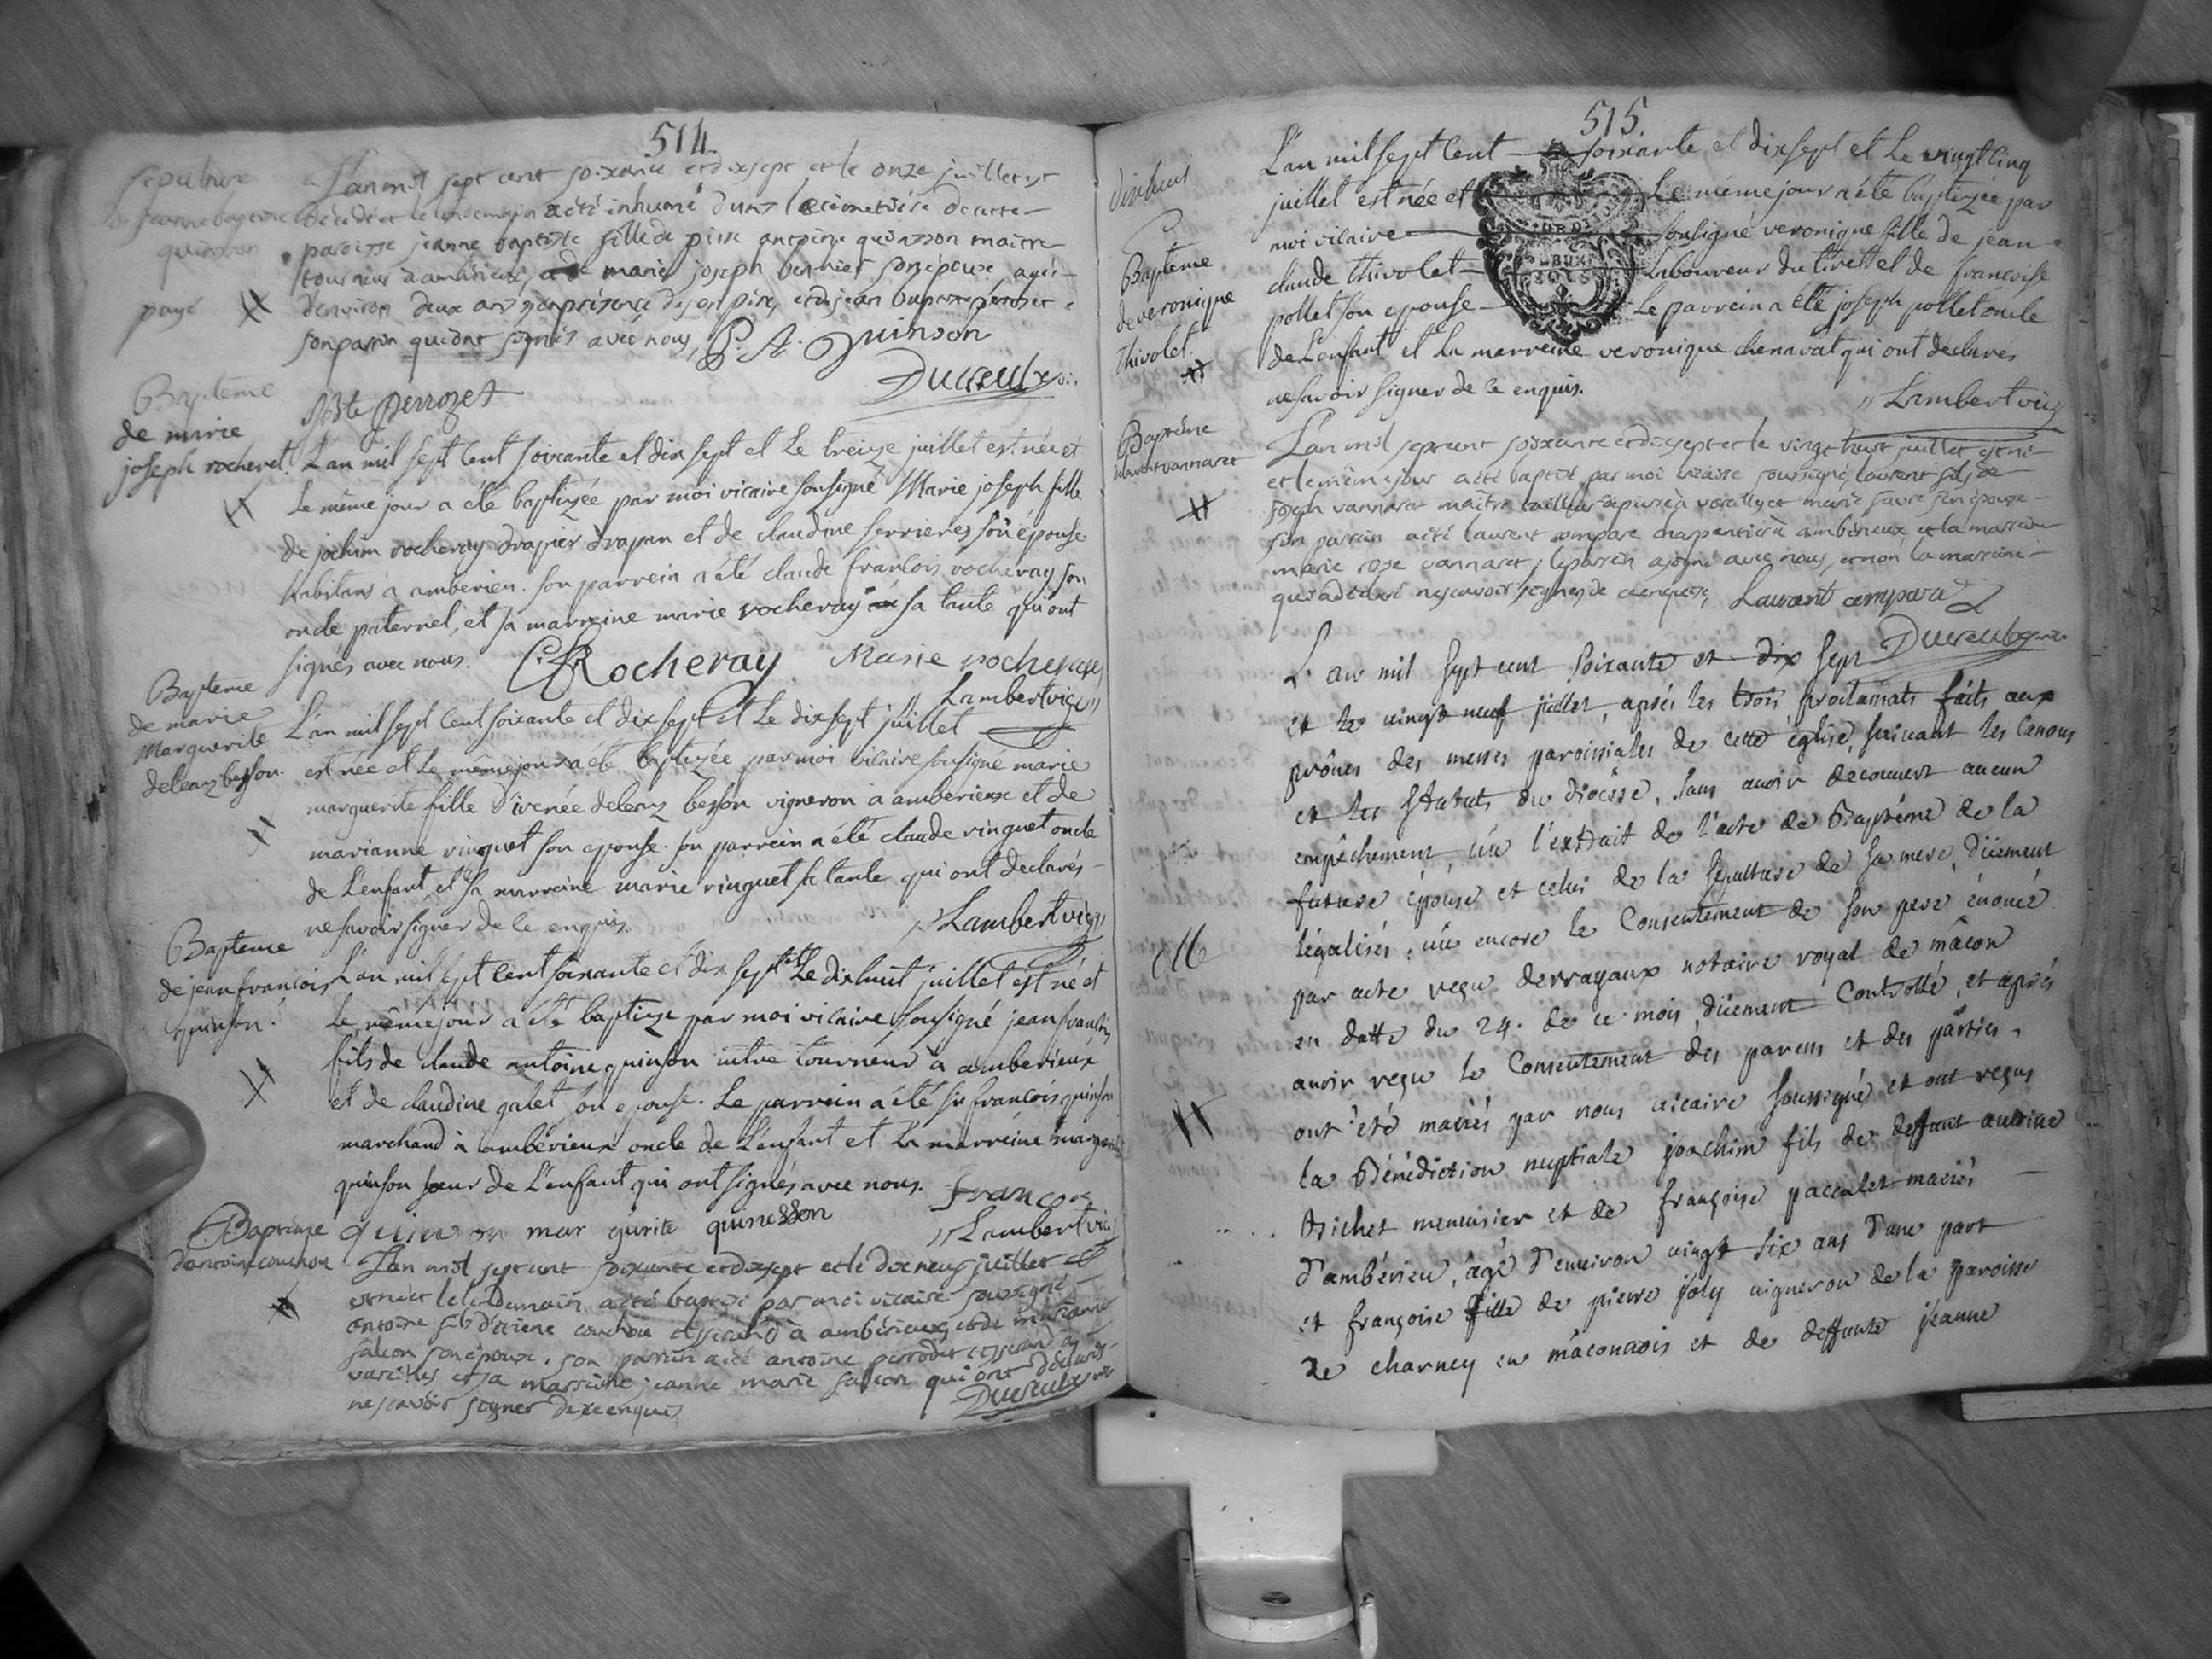 514
Sepulture
de jeanne baptiste
quinson
payé
L'an mil sept cent soixante et dixsept et le onze juillet est
décédée et le lendemain a été inhumé dans le cimetière de cette
paroisse jeanne baptiste fille de pierre antoine quinsson maitre
tourneur à ambérieux, et de marie joseph bernier son épouse agée
d'environ deux ans en présence de son père, et de jean baptiste perrozet
son parrin qui ont signés avec nous, P. A. Quinson
Ducreulx vi.
Bte perrozet
Bapteme
de marie
joseph rocheret.
L'an mil sept cent soixante et dix sept et Le treize juillet est née et
Le même jour a été baptizée par moi vicaire sousigné Marie joseph fille
de jochim rocheray drapier drapan et de claudine ferrieres son épouse
habitans à amberieu. son parrein a été claude francois rocheray son
oncle paternel, et sa marreine marie rocheray sa tante qui ont
signés avec nous. C. f. Rocheray Marie rocheray
Lambert vic,,
Bapteme
de marie
Marguerite
deleaz besson.
L'an mil sept cent soixante et dix sept et Le dix sept juillet
est née et Le même jour a été baptizée par moi vicaire sousigné marie
marguerite fille d'irenée deleaz besson vigneron à amberieux et de
marianne vinguet son epouse. son parrein a été claude vinguet oncle
de L'enfant, et sa marreine marie vinguet sa tante qui ont declarés
ne savoir signer de ce enquis.
,,Lambert vic,,
Bapteme
de jean francois
quinson.
L'an mil sept cent soixante et dix sept et Le dixhuit juillet est né et
Le même jour a été baptizé par moi vicaire sousigné jean francois
fils de claude antoine quinson maitre tourneur à amberieux
et de claudine galet son epouse. Le parrein a été sr francois quinson
marchand à ambérieux oncle de L'enfant et La marreine marguerite
quinson soeur de L'enfant qui ont signés avec nous. francois
quinson mar gurite quinesson
,,Lambert vic
Baptême
d'antoine couchou
L'an mil sept cent soixante et dixsept et le dix neuf juillet
est né et le lendemain a été baptisé par moi vicaire soussigné
antoine fils d'étiene couchou tisserand à ambérieux, et de marianne
falcon son épouse. son parrin a été antoine perrodet tisserand à
vareilles et sa marreine jeanne marie falcon qui ont déclarés
ne scavoir signer de ce enquis
Ducreulx vi
515.
dixhuit
Bapteme
de veronique
thivolet.
L'an mil sept cent soixante et dix sept et Le vingt cinq
juillet est née et Le même jour a été baptizée par
moi vicaire sousigné veronique fille de jean
claude thivolet laboureur du tiret et de francoise
pollet son epouse Le parrein a été joseph pollet oncle
de L'enfant et La marreine veronique chenavat qui ont declarés
ne savoir signer de ce enquis.
,,Lambert vic
Baptême
de laurent vannaret
L'an mil sept cent soixante et dixsept et le vingt huit juillet est né
et le même jour a été baptisé par moi vicaire soussigné laurent fils de
joseph vannaret maître tailleur de pierre à vareilles et marie favre son épouse
son parrain a été laurent compare charpentier à ambérieux et la marreine
marie rose vannaret; le parrein a signé avec nous, et non la marreine
qui a déclaré ne scavoir signer de ce enquise, Laurant compara
Ducreulx vi
L'an mil sept cent soixante et dix sept
et le vingt neuf juillet, après les trois proclamats faits aux
prônes des messes paroissiales de cette église, suivant les Canons
et les statuts du diocèse, sans avoir découvert aucun
empêchement, vû l'extrait de l'acte de Baptême de la
future épouse et celui de la sépulture de sa mere, düement
légalisés; vû encore le Consentement de son pere énoncé
par acte reçu derrayaux notaire royal de mâcon
en datte du 24. de ce mois düement Controllé, et après
avoir reçu le Consentement des parens et des parties,
ont été mariés par nous vicaire soussigné et ont reçus
la Bénédiction nuptiale joachim fils de deffunt antoine
Brichet menuisier et de françoise paccalet mariés
d'ambérieu, âgé d'environ vingt six ans d'une part
et françoise fille de pierre joly vigneron de la paroisse
de charney en mâconnois et de deffunte jeanne